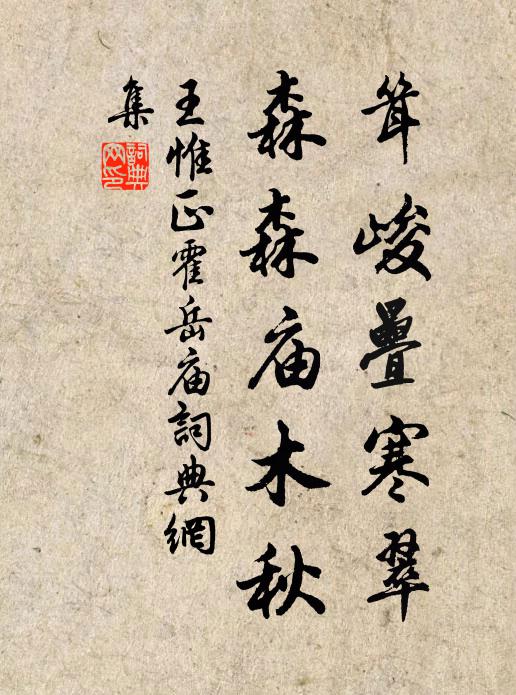 耸峻疊寒翠
森森庙木秋
王惟正霍岳庙詞典網
集
詞典网印